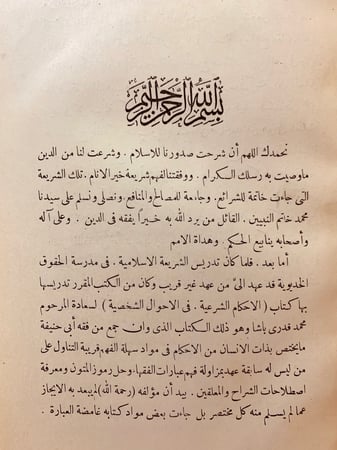 بسم الله الرحمن الرحيم
نحمدك اللهم أن شرحت صدورنا للاسلام . وشرعت لنا من الدين
ماوصيت به رسلك الكرام . ووفقتنا لفهم شريعة خير الانام . تلك الشريعة
التى جاءت خاتمة للشرائع . وجامعة للمصالح والمنافع . ونصلى ونسلم على سيدنا
محمد خاتم النبيين . القائل من يرد الله به خيرًا يفقهه فى الدين . وعلى آله
وأصحابه ينابيع الحكم . وهداة الامم
أما بعد . فلما كان تدريس الشريعة الاسلامية . فى مدرسة الحقوق
الخديوية قد عهد الىّ من عهد غير قريب وكان من الكتب المقرر تدريسها
بها كتاب ( الاحكام الشرعية . فى الاحوال الشخصية ) لسعادة المرحوم
محمد قدرى باشا وهو ذلك الكتاب الذى وان جمع من فقه أبى حنيفة
ما يختص بذات الانسان من الاحكام فى مواد سهلة الفهم قريبة التناول على
من ليس له سابقة عهد بمزاولة فهم عبارات الفقهاء وحل رموز المتون ومعرفة
اصطلاحات الشراح والمعلقين . بيد أن مؤلفه (رحمة الله) لم يبعد به الايجاز
عما لم يسلم منه كل مختصر بل جاءت بعض مواد كتابه غامضة العبارة .